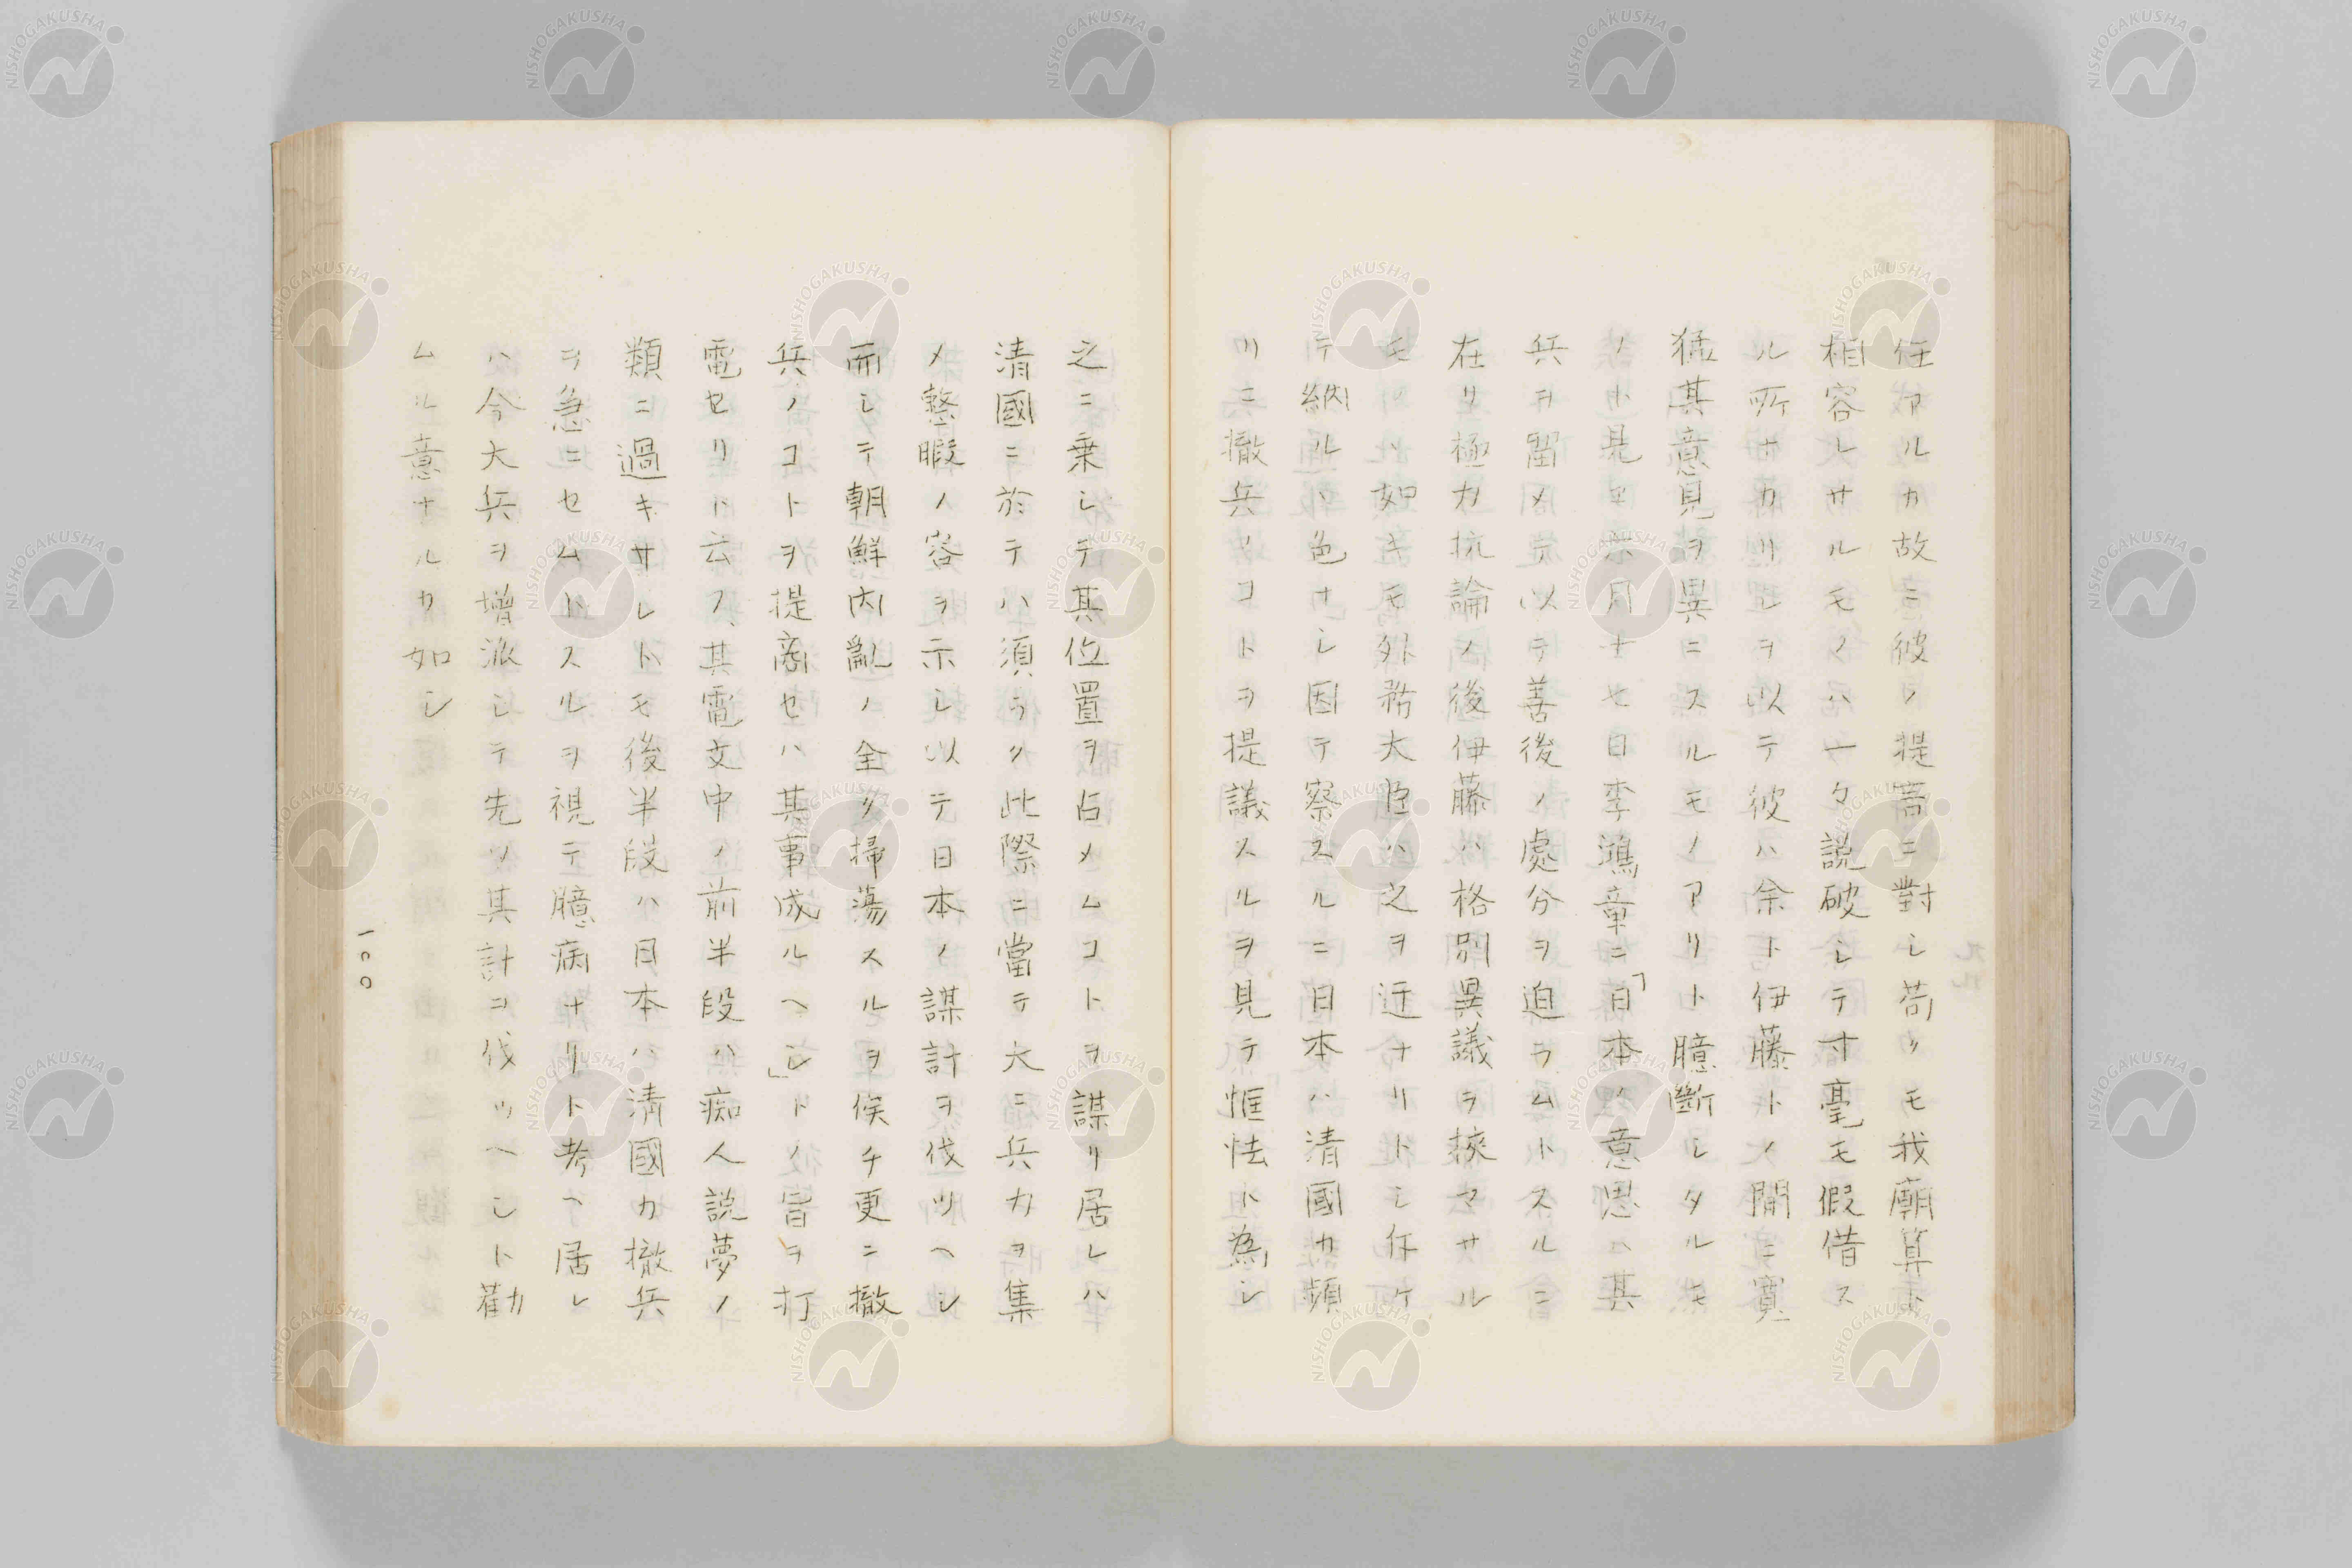 任アルカ故ニ彼ノ提言ニ對シ苟クモ我廟算ト
相容レサルモノハ一々説破シテ寸毫モ假借ス
ル所ナカリシヲ以テ彼ハ余ト伊藤トノ間ニ寛
猛其意見ヲ異ニスルモノアリト臆斷シタルモ
ノト見エ六月十七日李鴻章ニ「日本ノ意思ハ其
兵ヲ留メテ以テ善後ノ處分ヲ迫ラムトスルニ
在リ極力抗論ノ後伊藤ハ格別異議ヲ挾マサル
モノヽ如キモ外務大臣ハ之ヲ迂ナリトシ仆ケ
テ納ルヽ色ナシ因テ察スルニ日本ハ清國カ頻
リニ撤兵ノコトヲ提議スルヲ見テ惟怯ト為シ
之ニ乗シテ其位置ヲ占メムコトヲ謀リ居レハ
清國ニ於テハ須ラク此際ニ當テ大ニ兵力ヲ集
メ整暇ノ容ヲ示シ以テ日本ノ謀計ヲ伐ツヘシ
而シテ朝鮮内亂ノ全ク掃蕩スルヲ俟チ更ニ撤
兵ノコトヲ提商セハ其事成ルヘシ」トノ旨ヲ打
電セリト云フ、其電文中ノ前半段ハ痴人説夢ノ
類ニ過キサレトモ後半段ハ日本ハ清國カ撤兵
ヲ急ニセムトスルヲ視テ臆病ナリト考ヘ居レ
ハ今大兵ヲ增派シテ先ツ其計ヲ伐ツヘシト勸
ムル意ナルカ如シ
一〇〇